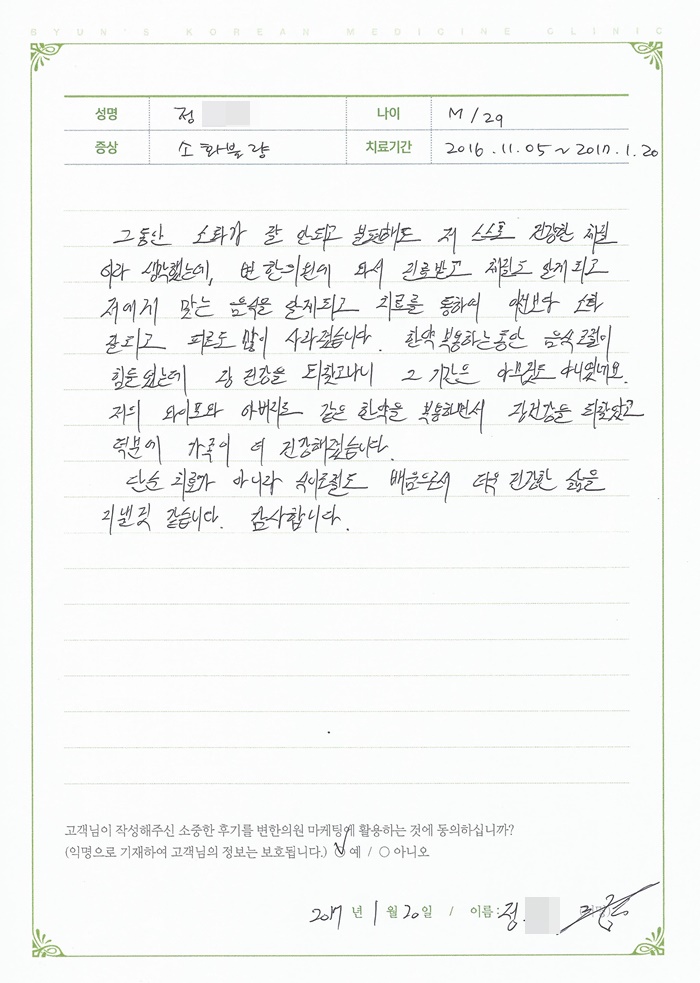 BYUN'S KOREAN MEDICINE CLINIC
성명 정 나이 M/29
증상 소화불량 치료기간 2016.11.05~2017.1.20
그동안 소화가 잘 안되고 불편해도 저 스스로 건강한 체질
이라 생각했는데, 변한의원에 와서 진료받고 체질도 알게되고
저에게 맞는 음식을 알게되고 치료를 통하여 이전보다 소화
잘되고 피로도 많이 사라졌습니다. 한약 복용하는동안 음식조절이
힘들었는데 장 건강을 되찾고나니 그 기간은 아무것도 아니였네요.
저의 와이프와 아버지도 같은 한약을 복용하면서 장건강을 되찾았고
덕분에 가족이 더 건강해졌습니다.
단순 치료가 아니라 식이조절도 배움으로서 더욱 건강한 삶을
지낼것 같습니다. 감사합니다.
고객님이 작성해주신 소중한 후기를 변한의원 마케팅에 활용하는 것에 동의하십니까?
(익명으로 기재하여 고객님의 정보는 보호됩니다.) 예 / 아니오
2017 년 1 월 20 일 / 이름: 정.